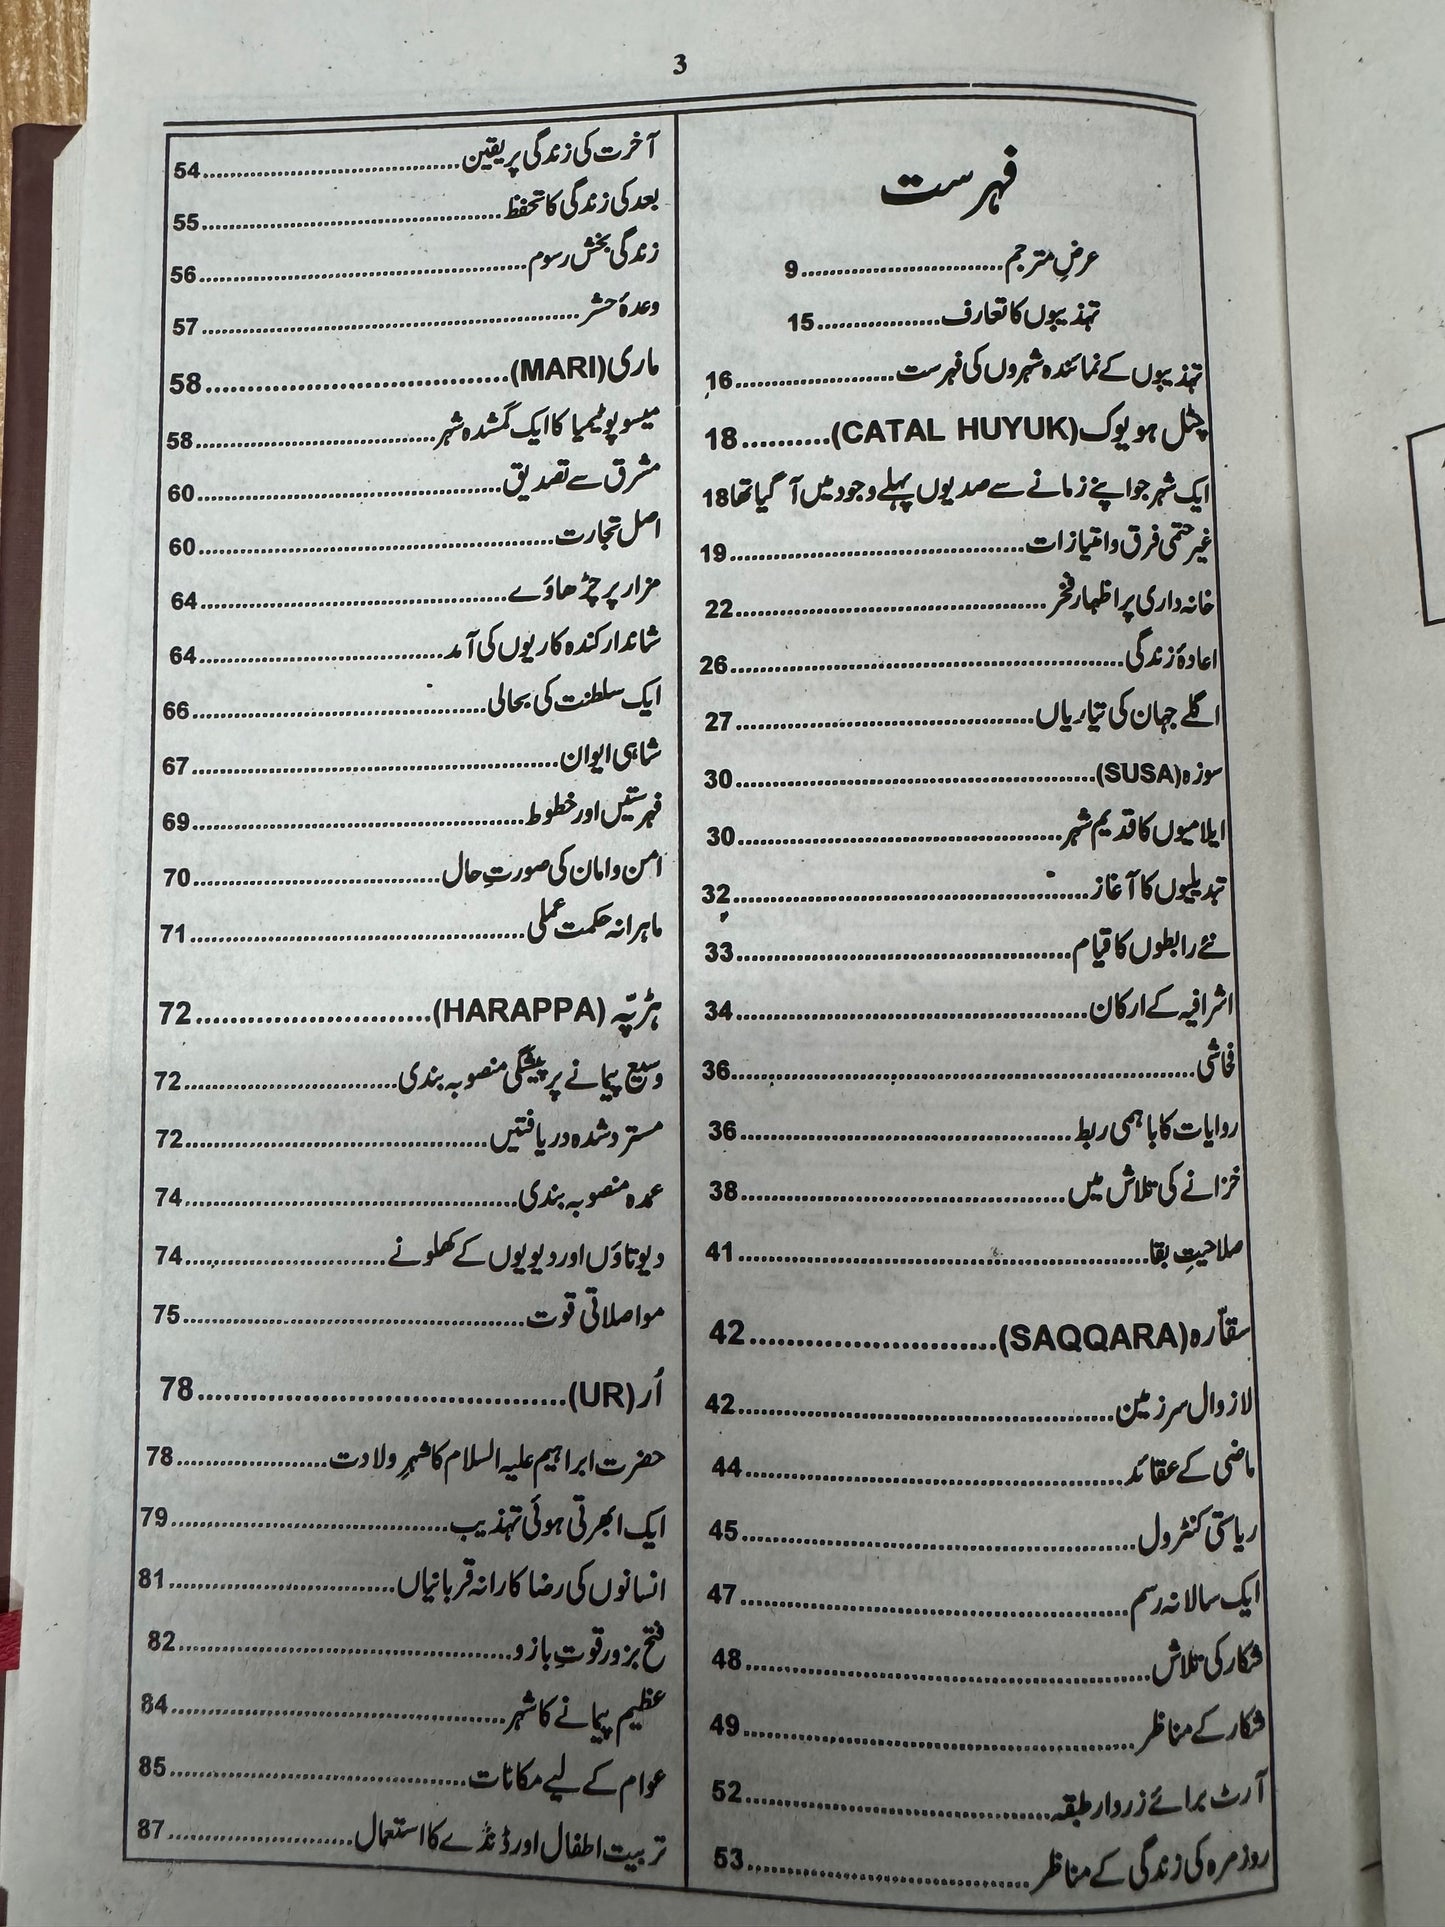 3
فہرست
عرضِ مترجم..............................9
تہذیبوں کا تعارف..................15
تہذیبوں کے نمائندہ شہروں کی فہرست......................16
چتل ہویوک (CATAL HUYUK)..........18
ایک شہر جو اپنے زمانے سے صدیوں پہلے وجود میں آ گیا تھا18
غیر حتمی فرق و امتیازات..........................................19
خانہ داری پر اظہارِ فخر............................................22
اعادۂ زندگی........................................................26
اگلے جہان کی تیاریاں...........................................27
سوزہ (SUSA)..................................................30
ایلامیوں کا قدیم شہر..............................................30
تبدیلیوں کا آغاز..................................................32
نئے رابطوں کا قیام................................................33
اشرافیہ کے ارکان..................................................34
فحاشی.................................................................36
روایات کا باہمی ربط................................................36
خزانے کی تلاش میں...............................................38
صلاحیتِ بقا..........................................................41
سقارہ (SAQQARA)...........................42
لازوال سرزمین......................................................42
ماضی کے عقائد......................................................44
ریاستی کنٹرول........................................................45
ایک سالانہ رسم.......................................................47
شکار کی تلاش.........................................................48
شکار کے مناظر.......................................................49
آرٹ برائے زردار طبقہ...........................................52
روزمرہ کی زندگی کے مناظر.......................................53
آخرت کی زندگی پر یقین.....................................54
بعد کی زندگی کا تحفظ...........................................55
زندگی بخش رسوم................................................56
وعدۂ حشر.......................................................57
ماری (MARI)..................................58
میسوپوٹیمیا کا ایک گمشدہ شہر..................................58
مشرق سے تصدیق.............................................60
اصل تجارت....................................................60
مزار پر چڑھاوے..............................................64
شاندار کندہ کاریوں کی آمد...................................64
ایک سلطنت کی بحالی..........................................66
شاہی ایوان.....................................................67
فہرستیں اور خطوط...............................................69
امن و امان کی صورتِ حال..................................70
ماہرانہ حکمت عملی................................................71
ہڑپّہ (HARAPPA)..........................72
وسیع پیمانے پر پیشگی منصوبہ بندی..............................72
مسترد شدہ دریافتیں............................................72
عمدہ منصوبہ بندی................................................74
دیوتاؤں اور دیویوں کے کھلونے.............................74
مواصلاتی قوت..................................................75
اُر (UR)..........................................78
حضرت ابراہیم علیہ السلام کا شہرِ ولادت.....................78
ایک ابھرتی ہوئی تہذیب......................................79
انسانوں کی رضاکارانہ قربانیاں................................81
فتح بزورِ قوتِ بازو..............................................82
عظیم پیمانے کا شہر...............................................84
عوام کے لیے مکانات..........................................85
تربیت اطفال اور ڈنڈے کا استعمال.........................87